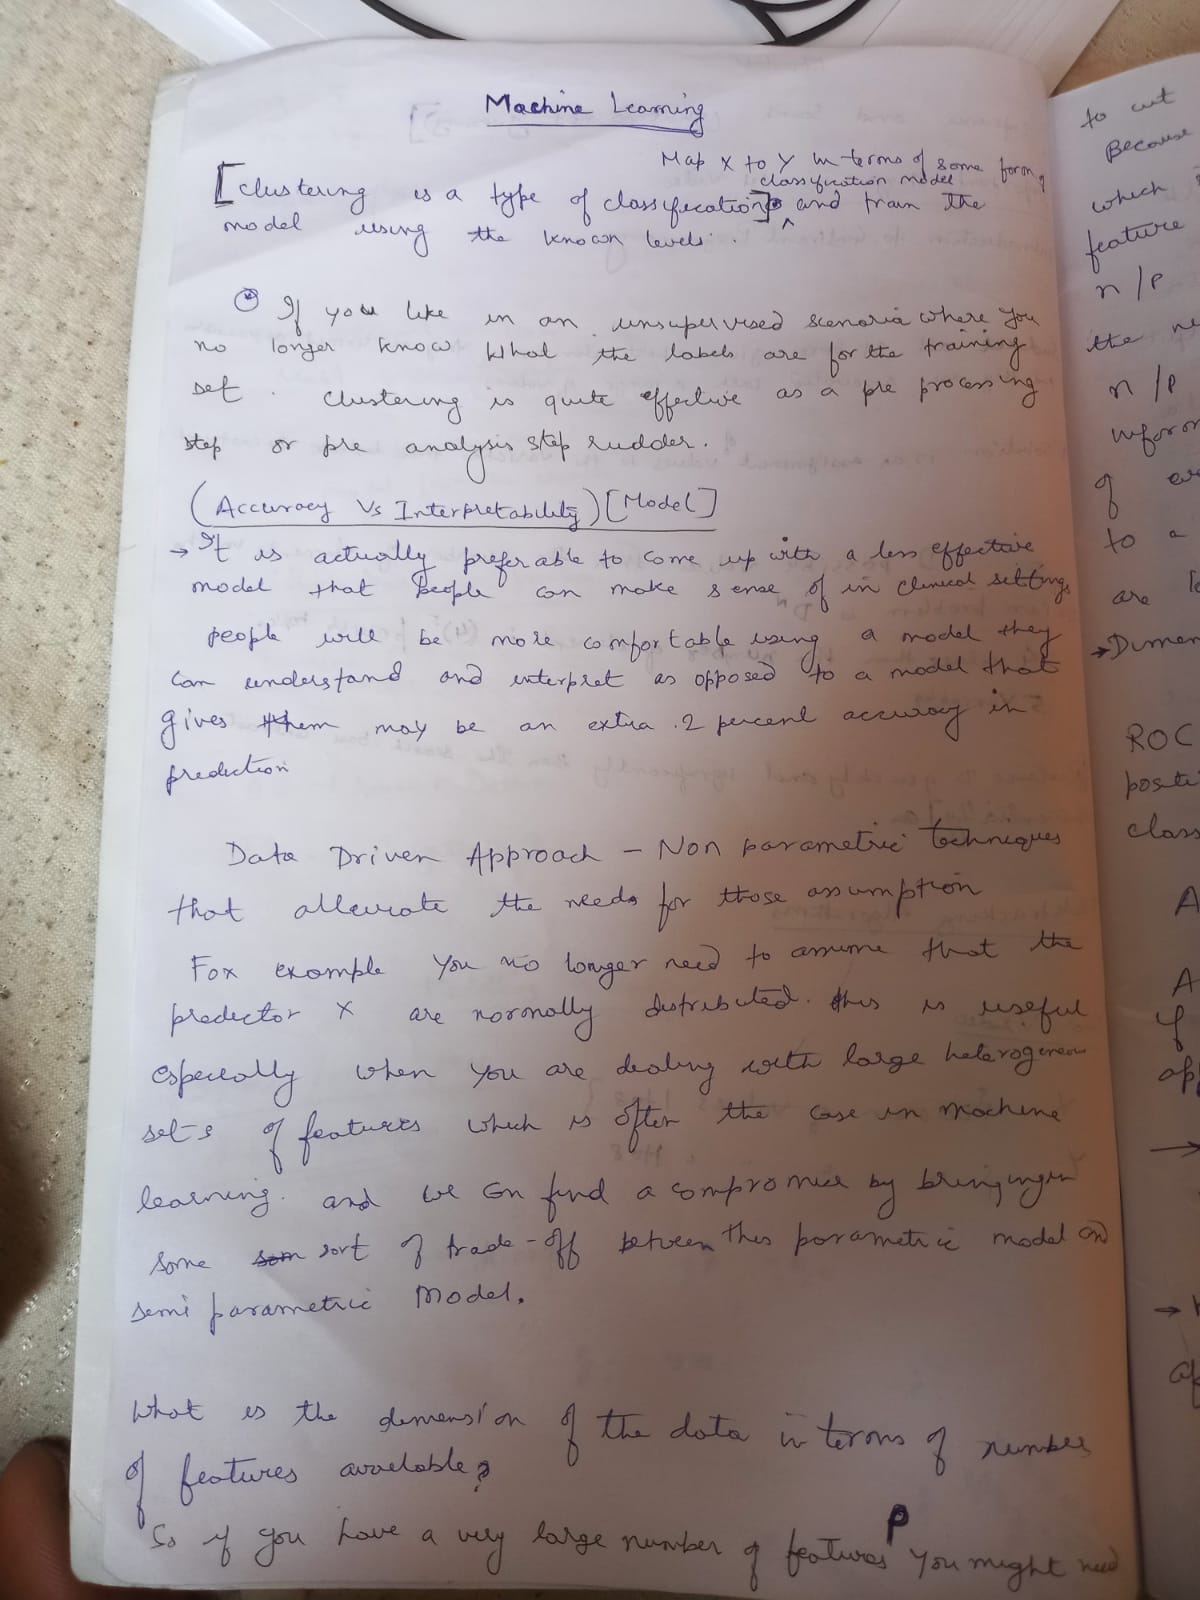 Machine Learning
Map X to Y in terms of some form of
classification model
[clustering is a type of classification] and train the
model using the known levels.
If you like in an unsupervised scenoria where you
no longer know what the labels are for the training
set. Clustering is quite effective as a pre processing
step or pre analysis step rudder.
(Accuracy Vs Interpretability) [Model]
→ It is actually preferable to come up with a less effective
model that people can make sense of in clinical settings
people will be more comfortable using a model they
can understand and interpret as opposed to a model that
gives them may be an extra .2 percent accuracy in
prediction
Data Driven Approach - Non parametric techniques
that alleviate the needs for those assumption
For example you no longer need to assume that the
predector X are normally distributed. this is useful
especially when you are dealing with large heterogeneous
sets of features which is often the case in machine
learning. and we can find a compromise by bringing in
some sort of trade-off between this parametric model and
semi parametric Model.
What is the dimension of the data in terms of number
of features available?
So if you have a very large number of features P you might need
to cut
Because
which
feature
n/p
the
n/p
of
to a
are
→ Dimen
ROC
positi
class
A
A
→
→